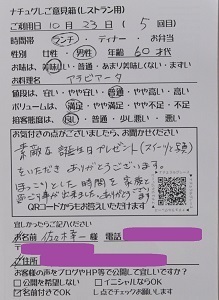 ナチュグレご意見箱(レストラン用)
ご利用日 10月 23日 ( 5 回目)
時間帯 ランチ・ディナー・お弁当
性別 女性・男性 年齢 60 才代
お味は、美味しい・普通・あまり美味しくない・まずい
お料理名 アラビアータ
値段は、安い・やや安い・普通・やや高い・高い
ボリュームは、満足・やや満足・やや不足・不足
接客態度は、良い・普通・少し悪い・悪い
お気付きの点がございましたら、お聞かせください
素敵な誕生日プレゼント(スイーツ3種)
をいただき ありがとうございます。
ほっこりとした時間を家族と
過ごす事が出来ました。ありがとうございます
QRコードからもお答えいただけます
宜しかったらご記入ください
お名前 佐々木幸一 様 電話
ご住所
お客様の声をブログやHP等で公開して宜しいですか?
□公開を希望しない □イニシャルならOK
☑名前付きでOK L点でチェックお願いします